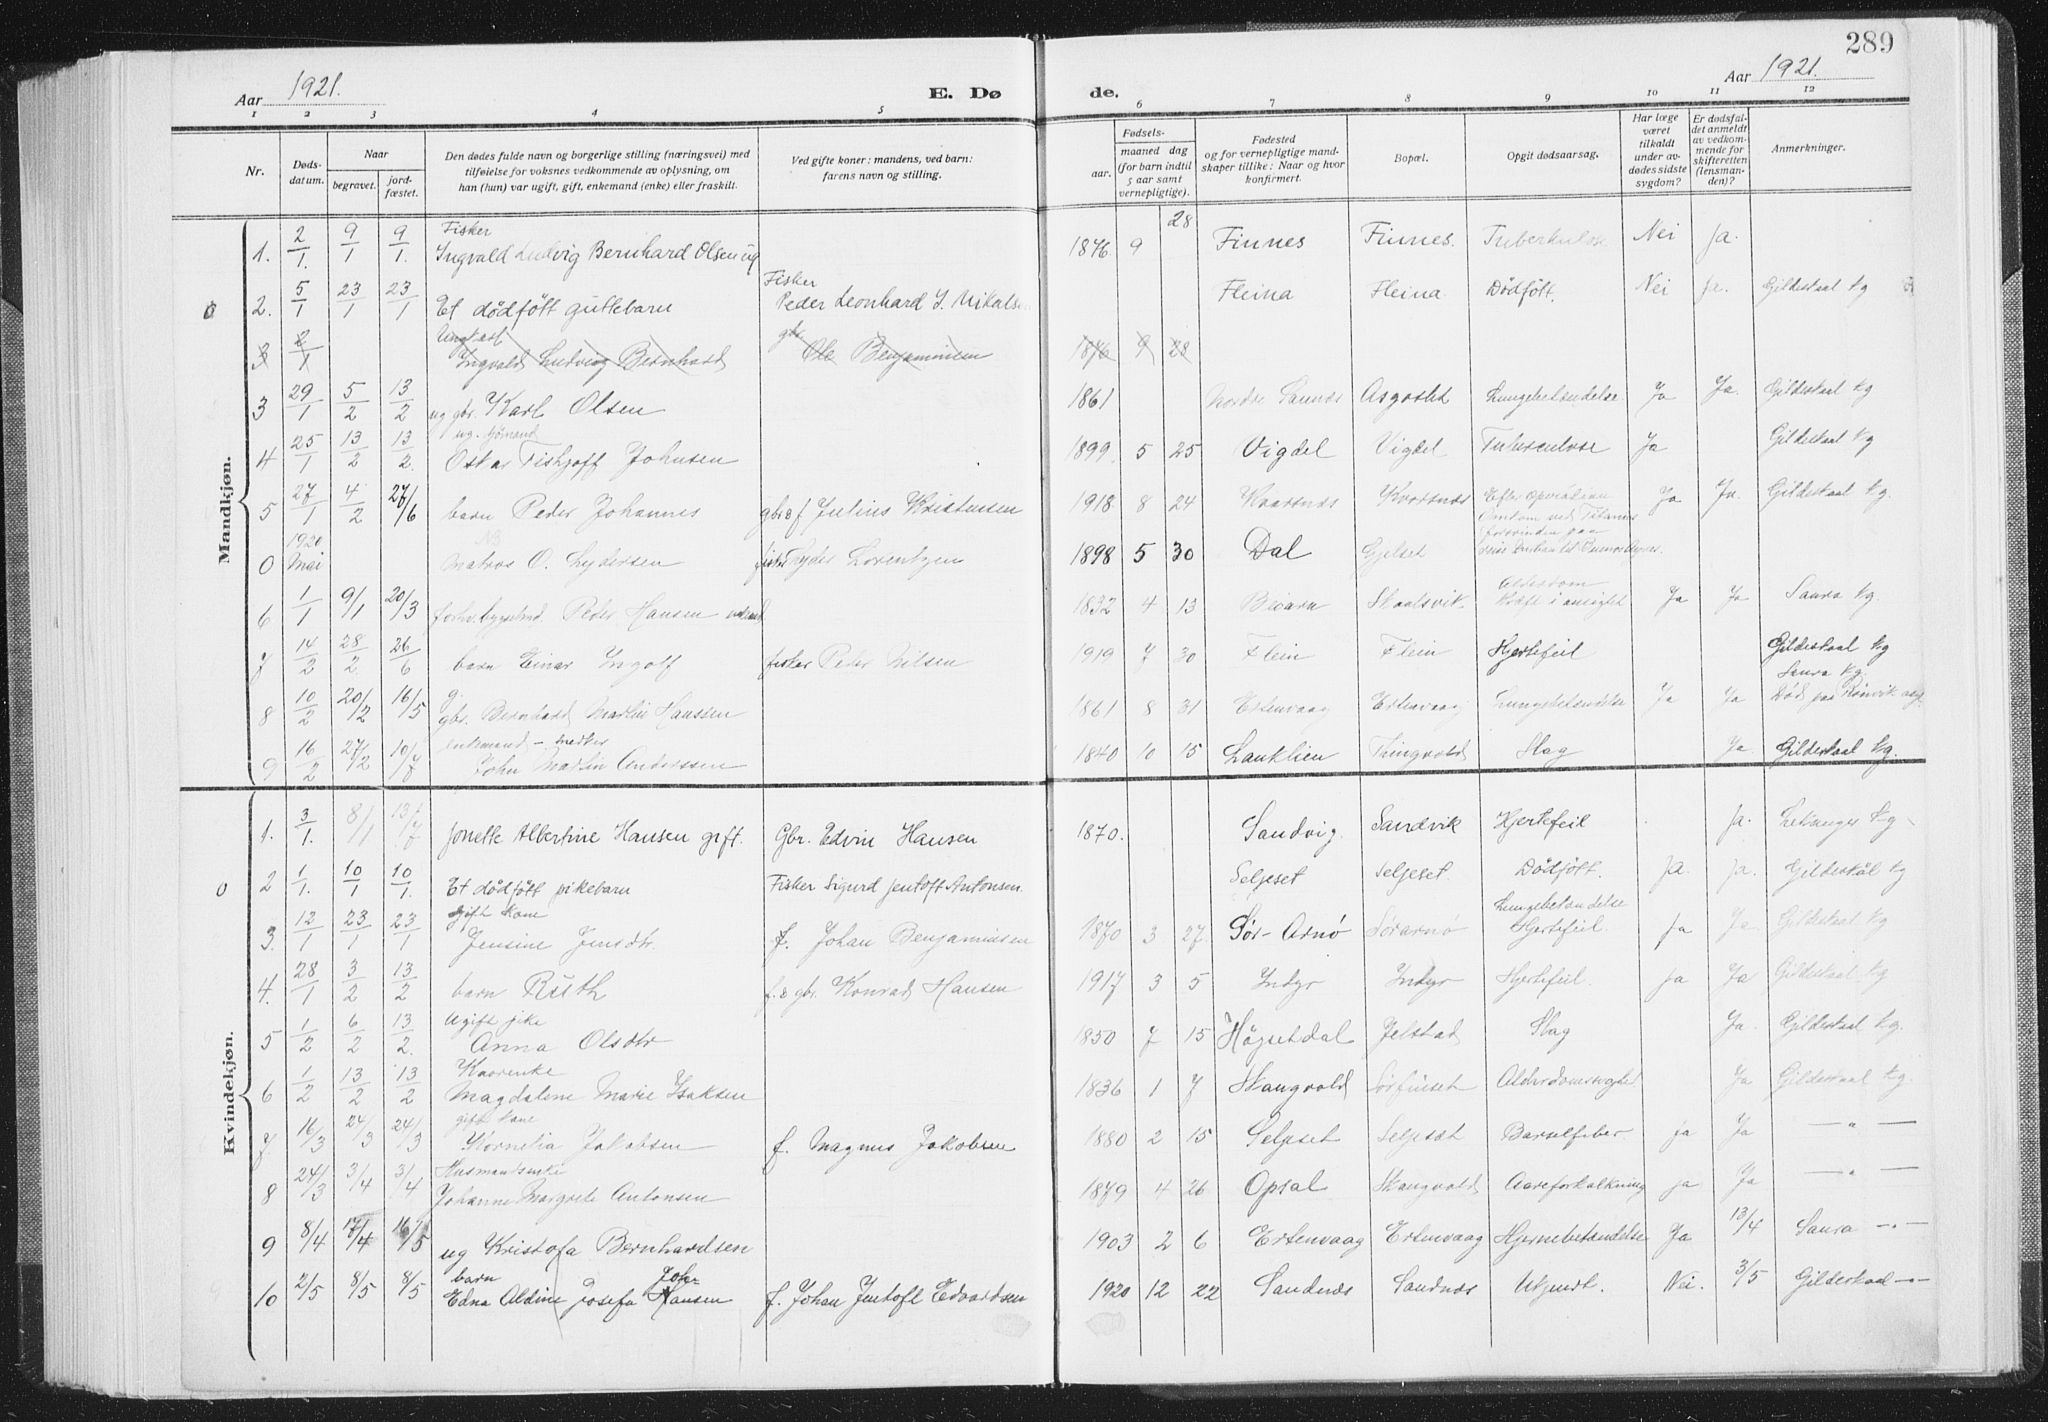 289
Aar 1921.
E. Dø
de.
Aar 1921.
1 2 3 4 5 6 7 8 9 10 11 12
Nr.
Døds-
datum.
Naar
begravet.
jord-
fæstet.
Den dødes fulde navn og borgerlige stilling (næringsvei) med
tilføielse for voksnes vedkommende av oplysning, om
han (hun) var ugift, gift, enkemand (enke) eller fraskilt.
Ved gifte koner: mandens, ved barn:
farens navn og stilling.
Fødsels-
aar.
maaned dag
(for barn indtil
5 aar samt
vernepligtige).
Fødested
og for vernepligtige mand-
skaper tillike: Naar og hvor
konfirmert.
Bopæl.
Opgit dødsaarsag.
Har læge
været
tilkaldt
under av-
dødes sidste
sygdom?
Er dødsfal-
det anmeldt
av vedkom-
mende for
skifteretten
(lensman-
den)?
Anmerkninger.
Mandkjøn.
Fisker
1. 2/1. 9/1 9/1. Ingvald Ludvig Bernhard Olsen ug 1876 9 28 Finnes Finnes. Tuberkulose Nei Ja.
Fisker
2. 5/1 23/1 23/1 Et dödfött guttebarn Peder Leonhard J. Nikols Fleina Fleina Dödfött. Nei Ja. Gildeskaal kg
Ungkarl
3 2/1 Ingvald Ludvig Bernhard gbr Ole Benjaminsen 1876 9 28
3 29/1 5/2 13/2 ug gbr. Karl Olsen 1861 Nordre Sannes Asgotld Lungebetændelse Ja Ja. Gildeskaal kg
ug. sømand
4 25/1 13/2 13/2. Oskar Tishjoff Johnsen 1899 5 25 Vigdel Vigdel Tuberculose Ja Gildeskaal kg
5 27/1 4/2 27/6 barn Peder Johannes gbr & f Julius Kristensen 1918 8 24 Kvarsnes Kvarsnes Efter operation Ja Ja. Gildeskaal kg.
NB
0 1920 Mai Matros O. Lydersen fisker Lyder Lorentzen 1898 5 30 Dal Gjelset
6 1/1 9/1 20/3 forhv. bygselmd. Peder Hansen 1832 4 13 Beiarn Skaalsvik Alderdom Kræft i ansigtet Ja Ja Saura kg.
7 14/2 28/2. 26/6 barn Einar Ingolf fisker Peder Nilsen 1919 7 30 Flein Flein Hjertefeil Gildeskaal kg
Saura kg.
8 10/2 20/2 16/5 gbr. Bernhard Martin Hanssen 1861 8 31 Ertenvaag Ertenvaag Lungebetændelse Ja Ja Död paa Rönvik asyl
enkemand –
9 16/2 27/2 10/7 John Martin Anderssen 1840 10 15 Lanklien Tingvold Slag Ja Gildeskaal kg.
Kvindekjøn.
1. 3/1. 8/1 13/7 Jonette Albertine Hansen gift. Gbr. Edvin Hansen 1870. Sandvig. Sandvik Hjertefeil Ja.
2 1/1. 10/1 10/1. Et dödfött pikebarn Fisker Sigurd Jentoft Antonsen. Selseset Selseset. Dödfött. Ja. Ja. Gildeskål kg
gift kone Lungebetændelse
3. 12/1 23/1 23/1 Jensine Jensdtr. f. Johan Benjaminsen 1870 3 27. Sör-Arnö Sörarnö Hjertefeil. Ja Ja. Gildeskaal kg
4. 28/1 3/2 13/2 barn Ruth f. & gbr. Konrad Hansen 1917 3 5 Indyr Indyr Hjertefeil. Ja Ja Gildeskaal kg
Ugift pike
5 1/2 6/2 13/2. Anna Olsdtr 1850 7 15 Högsetdal Jelstad Slag Ja. Gildeskaal kg.
Kaarenke
6 1/2 13/2 13/2 Magdalene Marie Isaksen 1836 1 7 Skangvold Sörfinset Alderdomssvaghed Ja Gildeskaal kg.
gift kone
7 16/3 24/3 24/3 Kornelia Jakobsen f. Magnus Jakobsen 1880 2 15 Selseset Selseset Barselfeber Ja Ja — " —
Husmandsenke
8 24/3 3/4 3/4 Johanne Margrete Antonsen 1849 4 26 Opsal Skangvold Aareforkalkning ja Ja — " —
9 8/4 17/4 16/5 ug Kristofa Bernhardsen 1903 2 6 Ertenvaag Ertenvaag Hjernebetændelse Ja 13/4 Saura – " –
barn Johan
10 2/5 8/5 8/5 Edna Aldine Josefa Hansen f. Johan Jentoft Edvardsen 1920 12 22 Sandnæs Sandnæs Ukjendt. Nei. 3/5 Gildeskaal – " –